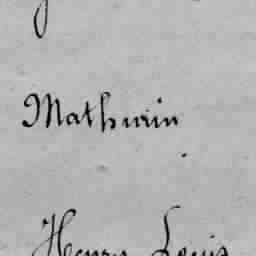 Mathurin
Henry Louis